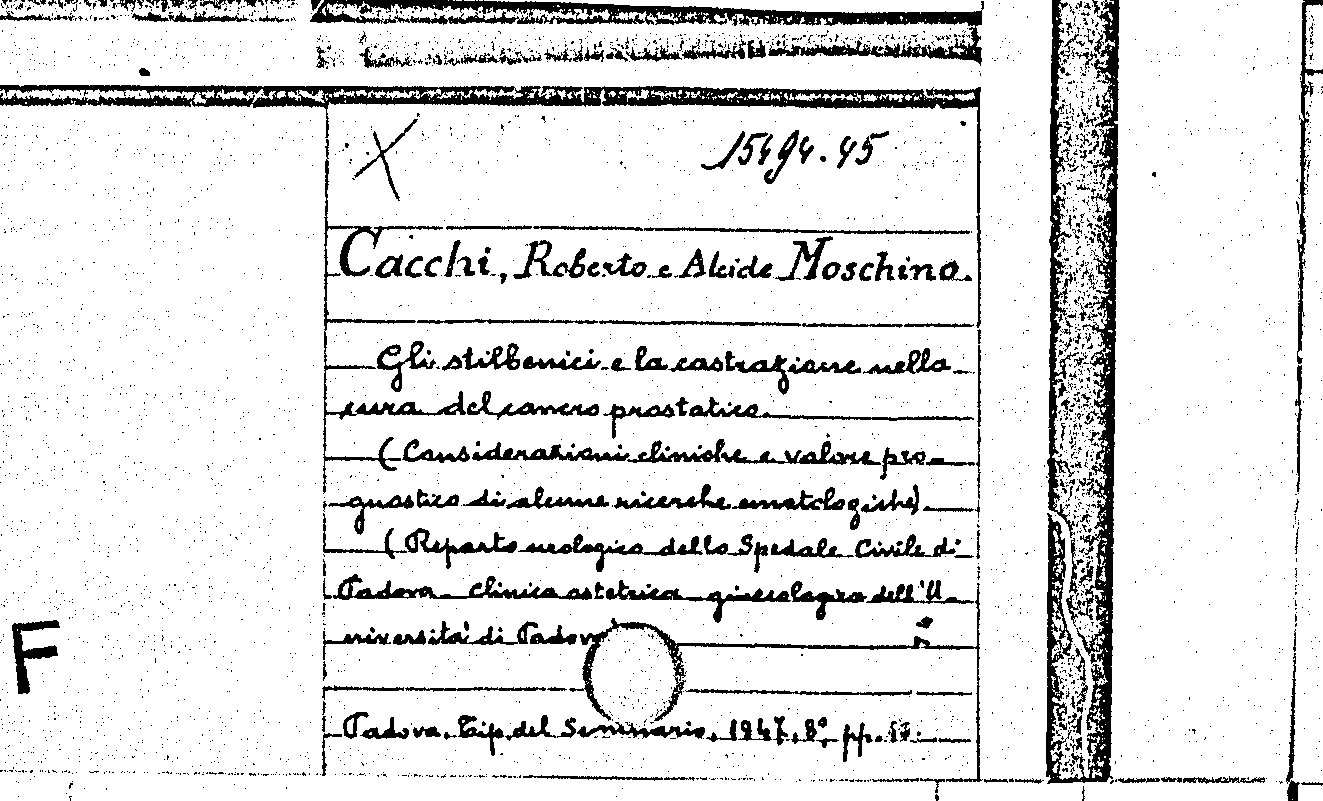 X
15494.45
Cacchi, Roberto e Alcide Moschino.
Gli stilbenici e la castrazione nella
cura del cancro prostatico.
(Considerazioni cliniche e valore pro-
gnostico di alcune ricerche ematologiche).
(Reparto urologico dello Spedale Civile di
Padova - Clinica ostetrica ginecologica dell'U-
niversità di Padova
F
Padova, Tip. del Seminario, 1947, 8° pp.